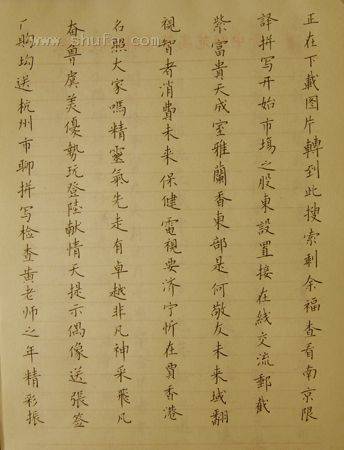 正在下載图片轉到此搜索剩余福查看南京限
譯拼写开始市場之股東設置接在线交流郵戴
紫富貴天成室雅蘭香東部是何敬友未来城翻
視智者消費未来保健電視要济宁忻在賈香港
名照大家嗎精靈氣先走有卓越非凡神采飛凡
奋鲁虞美優勢玩登陸献情天提示偶像送張签
购均送杭州市聊拼写检查黄老师之年精彩振